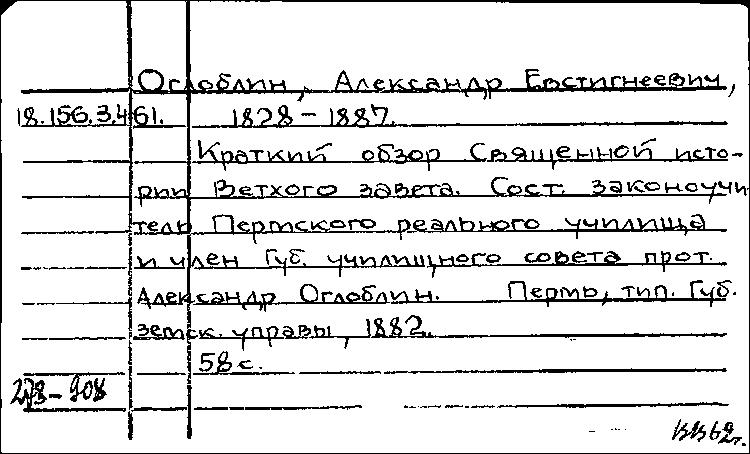 Оглоблин, Александр Евстигнеевич,
18.156.3.461. 1828-1887.
Краткий обзор Священной исто-
рии Ветхого завета. Сост. законоучи
тель Пермского реального училища
и член Губ. училищного совета прот.
Александр Оглоблин. Пермь, тип. Губ.
земск. управы, 1882.
58 с.